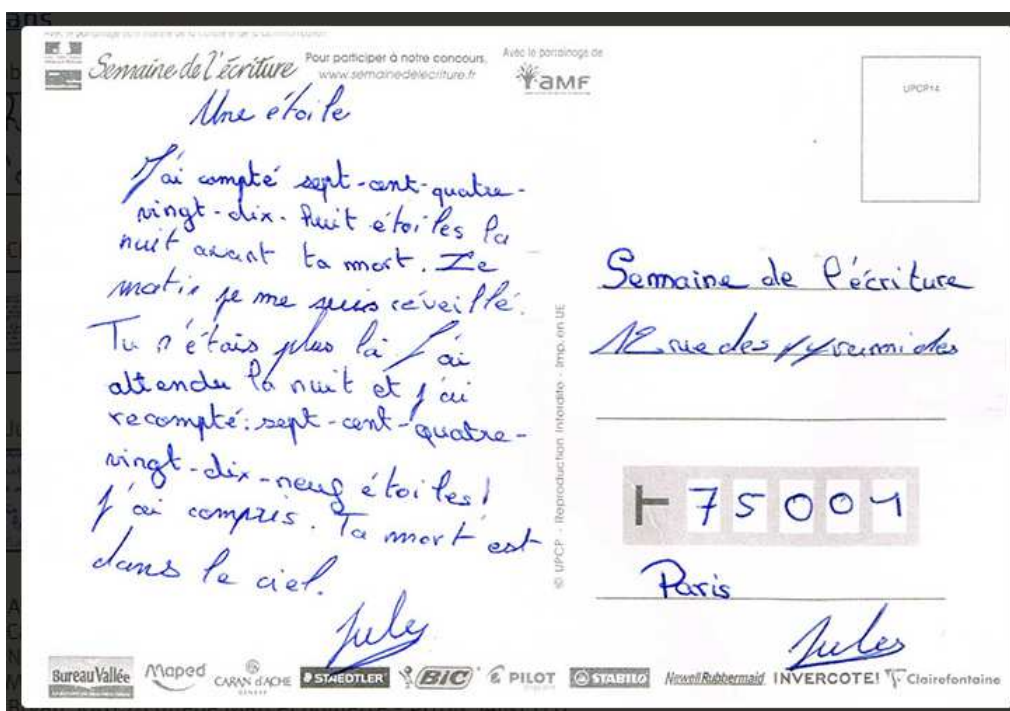 Semaine de l'écriture
Pour participer à notre concours,
www.semainedelecriture.fr
Avec le parrainage de
AMF
UPCP14
Une étoile
J'ai compté sept-cent-quatre-
vingt-dix-huit étoiles la
nuit avant ta mort. Le
matin je me suis réveillé.
Tu n'étais plus là J'ai
attendu la nuit et j'ai
recompté: sept-cent-quatre-
vingt-dix-neuf étoiles!
J'ai compris. Ta mort est
dans le ciel.
Jules
© UPCP - Reproduction interdite - Imp. en UE
Semaine de l'écriture
12 rue des pyramides
75001
Paris
Jules
Bureau Vallée Maped CARAN d'ACHE GENEVE STAEDTLER BIC PILOT STABILO NewellRubbermaid INVERCOTE! Clairefontaine